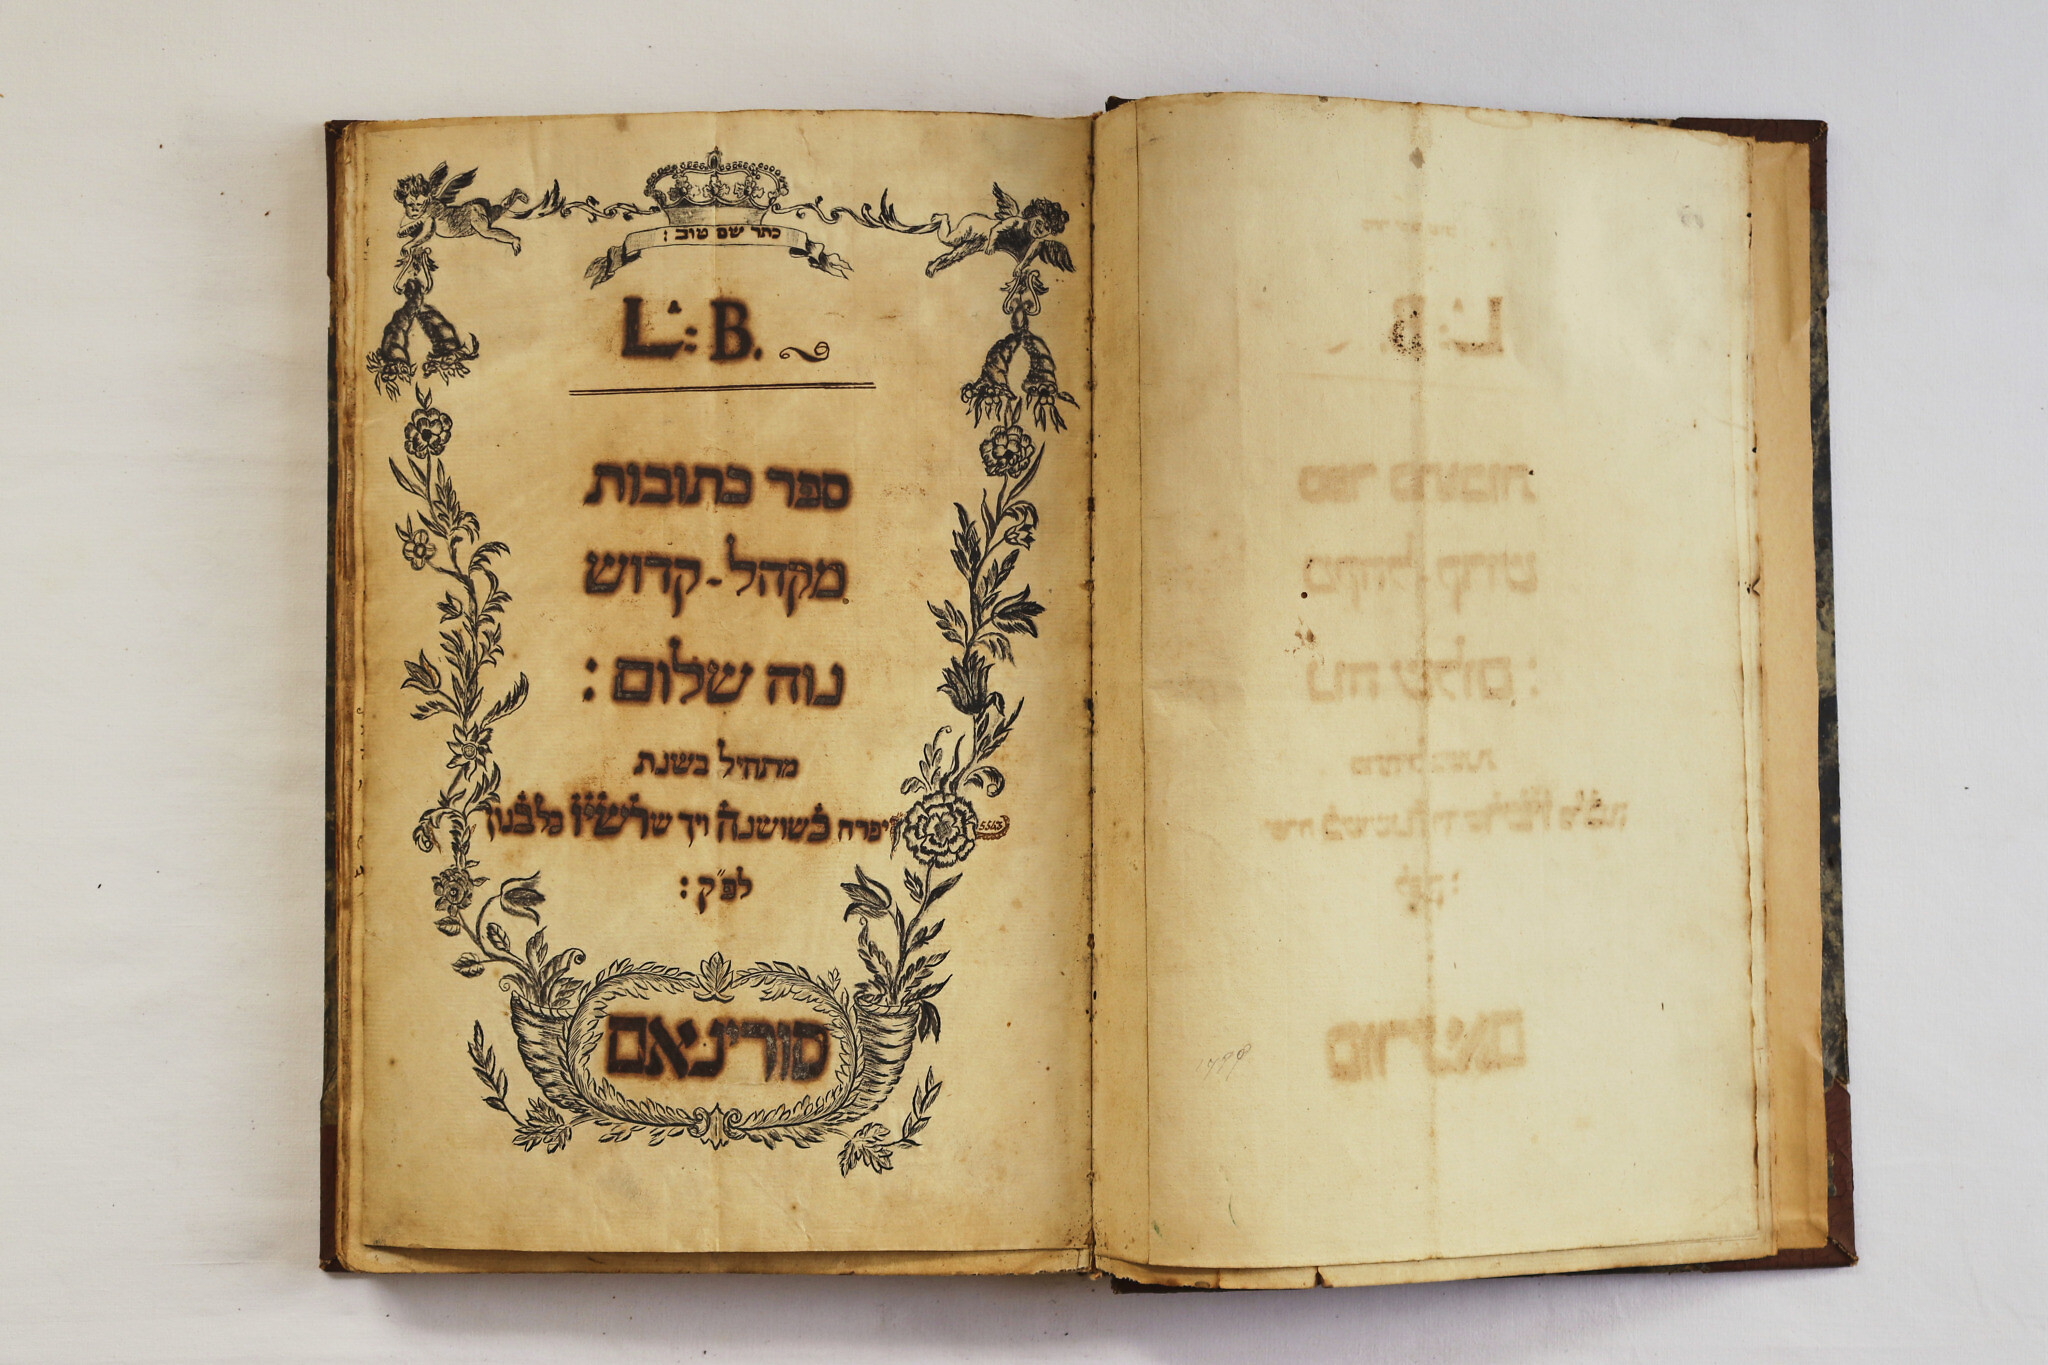 כתר שם טוב :
L: B.
ספר כתובות
מקהל-קדוש
נוה שלום :
מתחיל בשנת
יפרח כשושנה ויך שרשיו כלבנון
5543
לפ״ק :
סורינאם